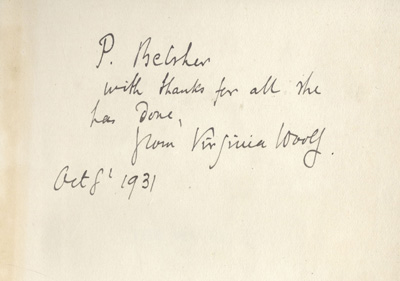 P. Belsher
with thanks for all she
has done,
from Virginia Woolf.
Oct 8t 1931